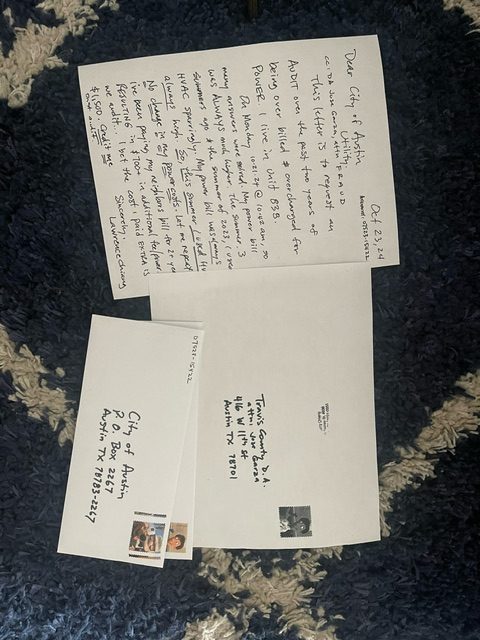 Oct 23, 24
Account: 07023-15822
Dear City of Austin
Utility
cc: DA Jose Garza, attn: FRAUD
This letter is to request an
AUDIT over the past two years of
being over billed & overcharged for
POWER. I live in Unit B3B.
On Monday 10.21.24 @ 10:42 am. so
many answers were My power bill
was ALWAYS much higher. The summer 3
summers ago & the summer of 2023, I used
HVAC sparingly. My power bill was always
always high. So this summer I used
No change in my power costs. Let me repeat
I've been paying my neighbors bill for 2+ years
RESULTING in $700+ in additional fee/power
we audit. I bet the cost I paid EXTRA is
$1,500. Credit me
Sincerely,
Lawrence Chiang
Travis County D.A.
attn: Jose Garza
416 W 11th St
Austin TX 78701
07023-15822
City of Austin
P.O. Box 2267
Austin TX 78783-2267